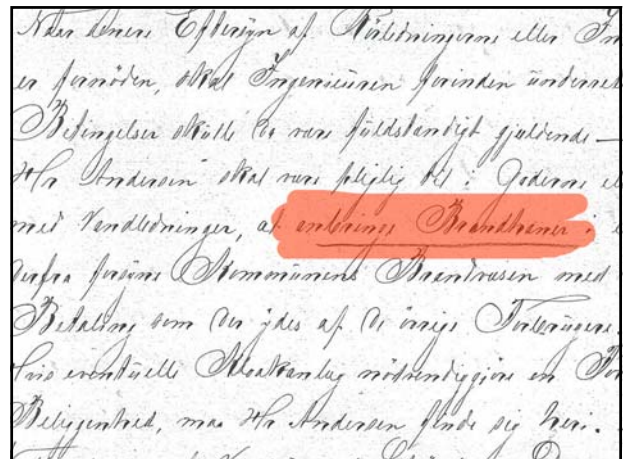 Naar senere Eftersyn af Rørledningerne eller In
er fornøden, skal Ingeniøren forinden underret
Betingelser skulle de være fuldstændigt gjældende —
Hr Andersen skal være pligtig til i Gaderne el
med Vandledninger, at anbringe Brandhaner i
derfra forsyne Kommunens Brandvæsen med
Betaling som der ydes af de øvrige Forbrugere.
Hvis eventuelle Kloakanlæg nødvendiggjøre en For
Beliggenhed, maa Hr Andersen finde sig heri.